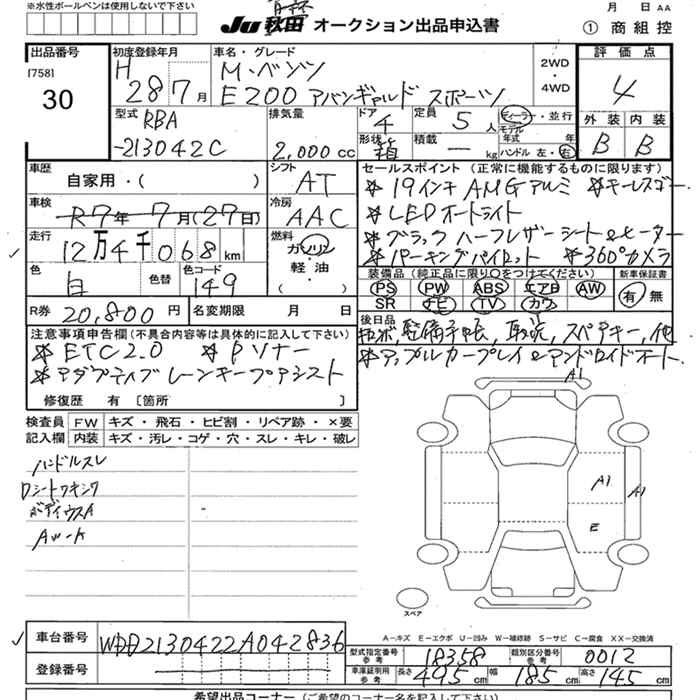 ※水性ボールペンは使用しないで下さい
Ju 秋田 オークション出品申込書
月 日 AA
① 商組控
出品番号
[758]
30
初度登録年月
H 28 7 月
車名・グレード
M・ベンツ
E200 アバンギャルド スポーツ
2WD
・
4WD
評価点
4
外装 内装
B B
型式
RBA
-213042C
排気量
2,000 cc
ドア
4
形状
箱
定員
5 人
積載
― kg
ディーラー・並行
モデル
年式 年
ハンドル 左・右
車歴
自家用・( )
シフト
AT
車検
R7年 7月(27日)
冷房
AAC
走行
12万4千068 km
燃料
ガソリン
軽・油
( )
色
白
色替
色コード
149
R券 20,800円
名変期限 月 日
セールスポイント (正常に機能するものに限ります)
* 19インチAMGアルミ * キーレスゴー
* LEDオートライト
* ブラックハーフレザーシート&ヒーター
* パーキングパイロット * 360°カメラ
装備品 (純正品に限り〇をつけてください)
PS PW ABS エアB AW
SR ナビ TV カワ
新車保証書
有・無
後日品
記ボ, 整備手帳, 取説, スペアキー, 他
* アップルカープレイ&アンドロイドオート
注意事項申告欄 (不具合内容等は具体的に記入して下さい)
* ETC2.0 * Pソナー
* アダプティブレーンキープアシスト
修復歴 有 [箇所 ]
検査員 FW キズ・飛石・ヒビ割・リペア跡・×要
記入欄 内装 キズ・汚レ・コゲ・穴・スレ・キレ・破レ
ハンドルスレ
Dシート
A1
A1
A1
E
スペア
A―キズ E―エクボ U―凹み W―補修跡 S―サビ C―腐食 XX―交換済
車台番号 WDD2130422A042836
登録番号
型式指定番号
参考
18358
類別区分番号
参考
0012
車庫証明用
参考
長さ 495 cm 幅 185 cm 高さ 145 cm
希望出品コーナー (ご希望のコーナー名を記入して下さい)